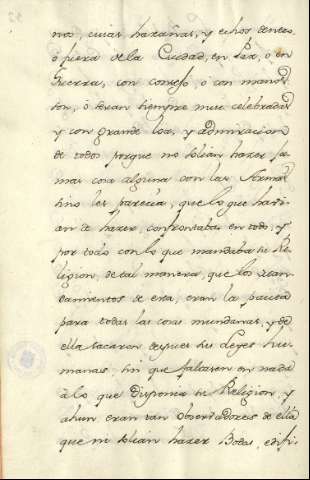 nos, cuias hazañas, y echos dentro
ó fuera de la Ciudad, en Paz, ó en
Guerra, con consejo, ó con manos
ton, ó eran siempre mui celebradas
y con grande loa, y admiracion
de todos porque no solian hazer ja
mas cosa alguna con las Armas
sino les parecia, que lo que havi
an de hazer, confrontaba en todo, y
por todo con lo que mandaba su Re
ligion, de tal manera, que los
damientos de esta, eran la pauta
para todas las cosas mundanas, y de
ella sacaron despues sus Leyes hu
manas, sin que faltasen en nada
á lo que disponia su Religion, y
ahun eran tan obserbadores de ella
que ni solian hazer Bodas, edifi